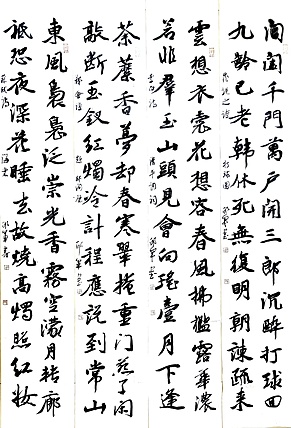 閶闔千門萬戶開三郎沉醉打球回
九齡已老韓休死無復明朝諫疏來
雲想衣裳花想容春風拂檻露華濃
若非羣玉山頭見會向瑤臺月下逢
清平調詞
荼蘼香夢怯春寒翠掩重門燕子閒
敲斷玉釵紅燭冷計程應說到常山
東風裊裊泛崇光香霧空濛月轉廊
祗恐夜深花睡去故燒高燭照紅妝
蘇軾詩